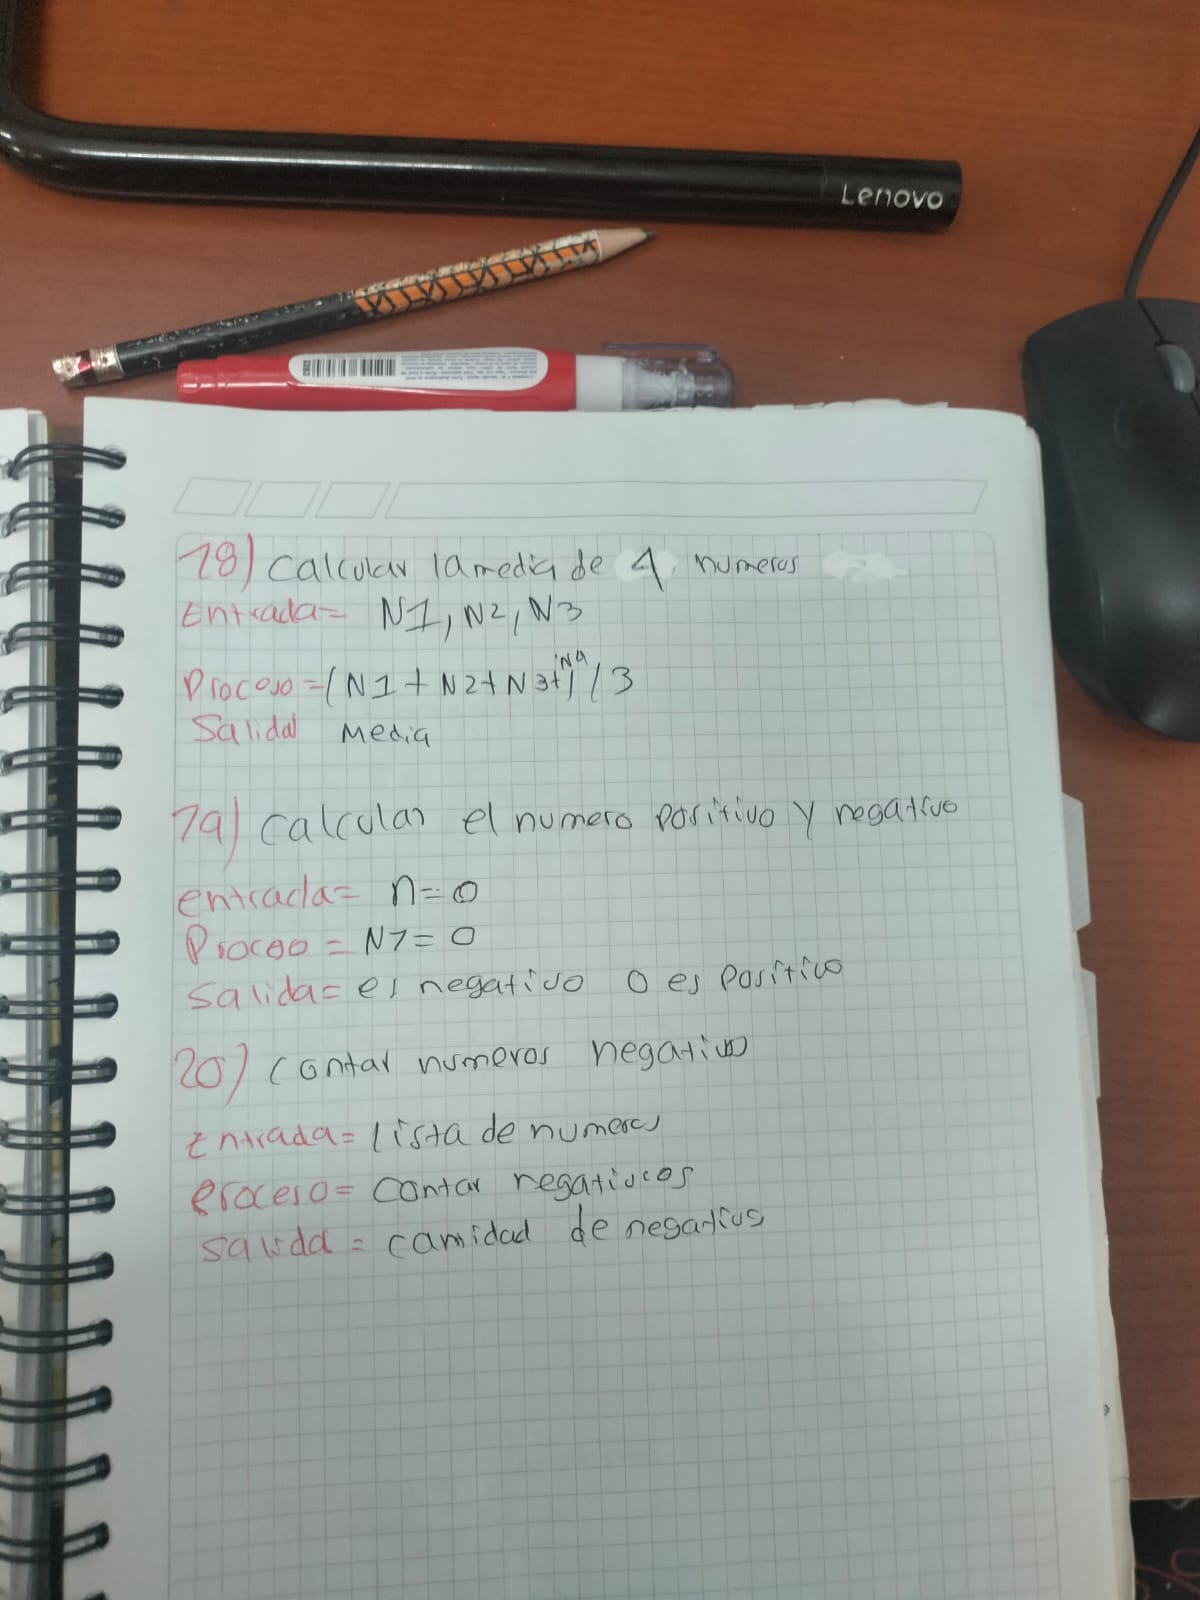 Lenovo
18) Calcular la media de 4 numeros
Entrada= N1, N2, N3
Proceso =(N1 + N2 + N3 + N4) / 3
Salida Media
19) Calcular el numero positivo y negativo
entrada= n=0
Proceso = N7= 0
Salida= es negativo o es Positivo
20) Contar numeros negativo
Entrada= Lista de numeros
Proceso= Contar negativos
Salida = cantidad de negativos